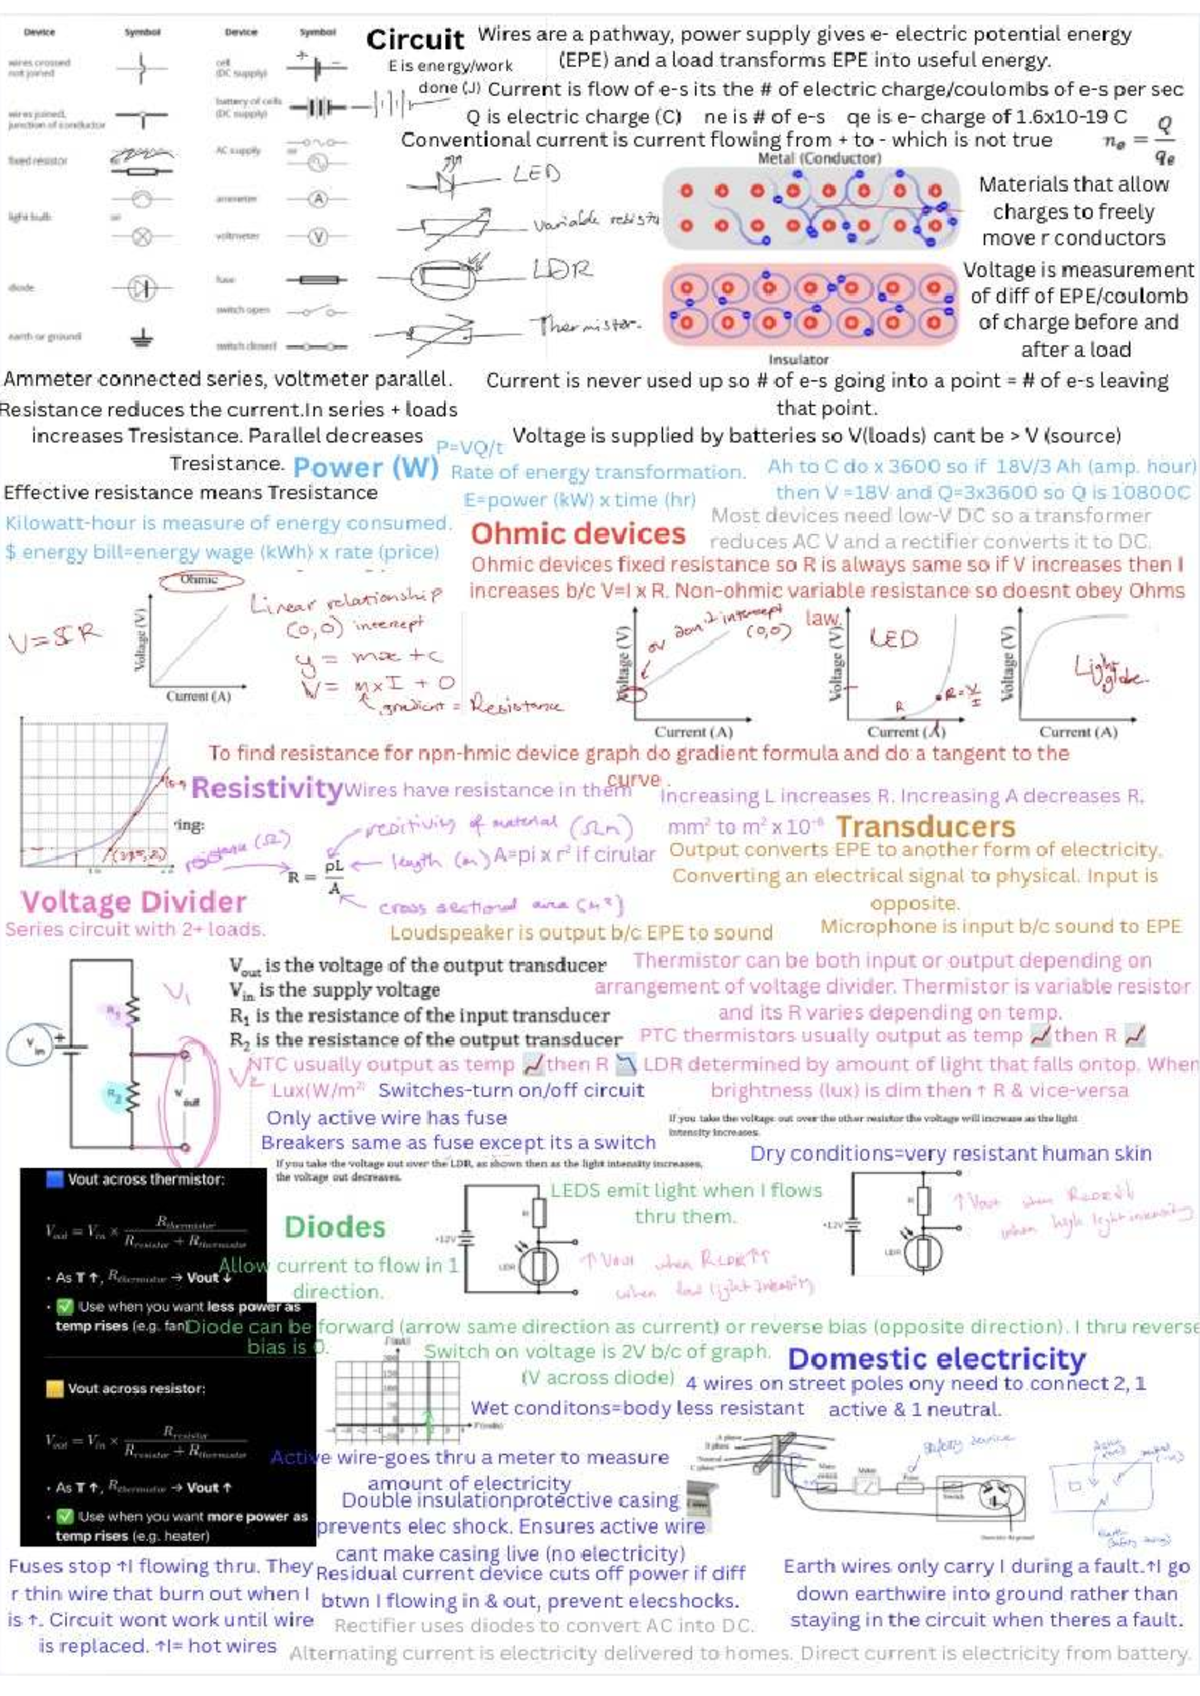 Device Symbol Device Symbol
wires crossed not joined
cell (DC supply)
wires joined, junction of conductor
battery of cells (DC supply)
fixed resistor
AC supply
ammeter
A
light bulb
voltmeter
V
diode
fuse
switch open
earth or ground
switch closed
Circuit
Wires are a pathway, power supply gives e- electric potential energy
(EPE) and a load transforms EPE into useful energy.
E is energy/work
done (J)
Current is flow of e-s its the # of electric charge/coulombs of e-s per sec
Q is electric charge (C) ne is # of e-s qe is e- charge of 1.6x10-19 C
Conventional current is current flowing from + to - which is not true
nₑ = Q/qₑ
LED
variable resista
LDR
Thermistor.
Metal (Conductor)
Insulator
Materials that allow
charges to freely
move r conductors
Voltage is measurement
of diff of EPE/coulomb
of charge before and
after a load
Ammeter connected series, voltmeter parallel.
Current is never used up so # of e-s going into a point = # of e-s leaving
that point.
Resistance reduces the current.In series + loads
increases Tresistance. Parallel decreases
Tresistance.
Voltage is supplied by batteries so V(loads) cant be > V (source)
Effective resistance means Tresistance
Power (W)
P=VQ/t
Rate of energy transformation.
E=power (kW) x time (hr)
Ah to C do x 3600 so if 18V/3 Ah (amp. hour)
then V =18V and Q=3x3600 so Q is 10800C
Kilowatt-hour is measure of energy consumed.
$ energy bill=energy wage (kWh) x rate (price)
Most devices need low-V DC so a transformer
reduces AC V and a rectifier converts it to DC.
Ohmic devices
Ohmic devices fixed resistance so R is always same so if V increases then I
increases b/c V=I x R. Non-ohmic variable resistance so doesnt obey Ohms
law.
V=IR
Ohmic
Voltage (V)
Current (A)
Linear relationship
(0,0) intercept
y = mx + c
V = m x I + 0
gradient = Resistance
or don't intercept
(0,0)
Voltage (V)
Current (A)
LED
R
R=V/I
Voltage (V)
Current (A)
Light globe
Voltage (V)
Current (A)
To find resistance for npn-hmic device graph do gradient formula and do a tangent to the
curve .
Resistivity
Wires have resistance in them
Increasing L increases R. Increasing A decreases R.
mm² to m² x 10⁻⁶
'ing:
resistance (Ω)
resitivity of material (Ωm)
R = ρL/A
length (m)
A=pi x r² if cirular
cross sectional area (m²)
Transducers
Output converts EPE to another form of electricity.
Converting an electrical signal to physical. Input is
opposite.
Loudspeaker is output b/c EPE to sound
Microphone is input b/c sound to EPE
Voltage Divider
Series circuit with 2+ loads.
V in
R₁
R₂
V out
V₁
V₂
Vout is the voltage of the output transducer
Vin is the supply voltage
R1 is the resistance of the input transducer
R2 is the resistance of the output transducer
Thermistor can be both input or output depending on
arrangement of voltage divider. Thermistor is variable resistor
and its R varies depending on temp.
PTC thermistors usually output as temp 📈then R 📈
NTC usually output as temp 📈then R 📉
LDR determined by amount of light that falls ontop. When
brightness (lux) is dim then ↑ R & vice-versa
Lux(W/m²)
Switches-turn on/off circuit
Only active wire has fuse
Breakers same as fuse except its a switch
If you take the voltage out over the other resistor the voltage will increase as the light
intensity increases.
Dry conditions=very resistant human skin
If you take the voltage out over the LDR, as shown then as the light intensity increases,
the voltage out decreases.
Vout across thermistor:
Vout = Vin × Rthermistor / Rresistor + Rthermistor
• As T ↑, Rthermistor → Vout ↓
• ✅ Use when you want less power as
temp rises (e.g. fan)
Vout across resistor:
Vout = Vin × Rresistor / Rresistor + Rthermistor
• As T↑, Rthermistor → Vout ↑
• ✅ Use when you want more power as
temp rises (e.g. heater)
Diodes
Allow current to flow in 1
direction.
LEDS emit light when I flows
thru them.
+12V
R
LDR
↑Vout when RLDR↑↑
when low light intensity
+12V
R
LDR
↑Vout when RLDR↓
when high light intensity
Diode can be forward (arrow same direction as current) or reverse bias (opposite direction). I thru reverse
bias is 0.
Switch on voltage is 2V b/c of graph.
(V across diode)
Domestic electricity
4 wires on street poles ony need to connect 2, 1
active & 1 neutral.
Wet conditons=body less resistant
Active wire-goes thru a meter to measure
amount of electricity
Double insulationprotective casing
prevents elec shock. Ensures active wire
cant make casing live (no electricity)
safety device
Fuses stop ↑I flowing thru. They
r thin wire that burn out when I
is ↑. Circuit wont work until wire
is replaced. ↑I= hot wires
Residual current device cuts off power if diff
btwn I flowing in & out, prevent elecshocks.
Earth wires only carry I during a fault.↑I go
down earthwire into ground rather than
staying in the circuit when theres a fault.
Rectifier uses diodes to convert AC into DC.
Alternating current is electricity delivered to homes. Direct current is electricity from battery.